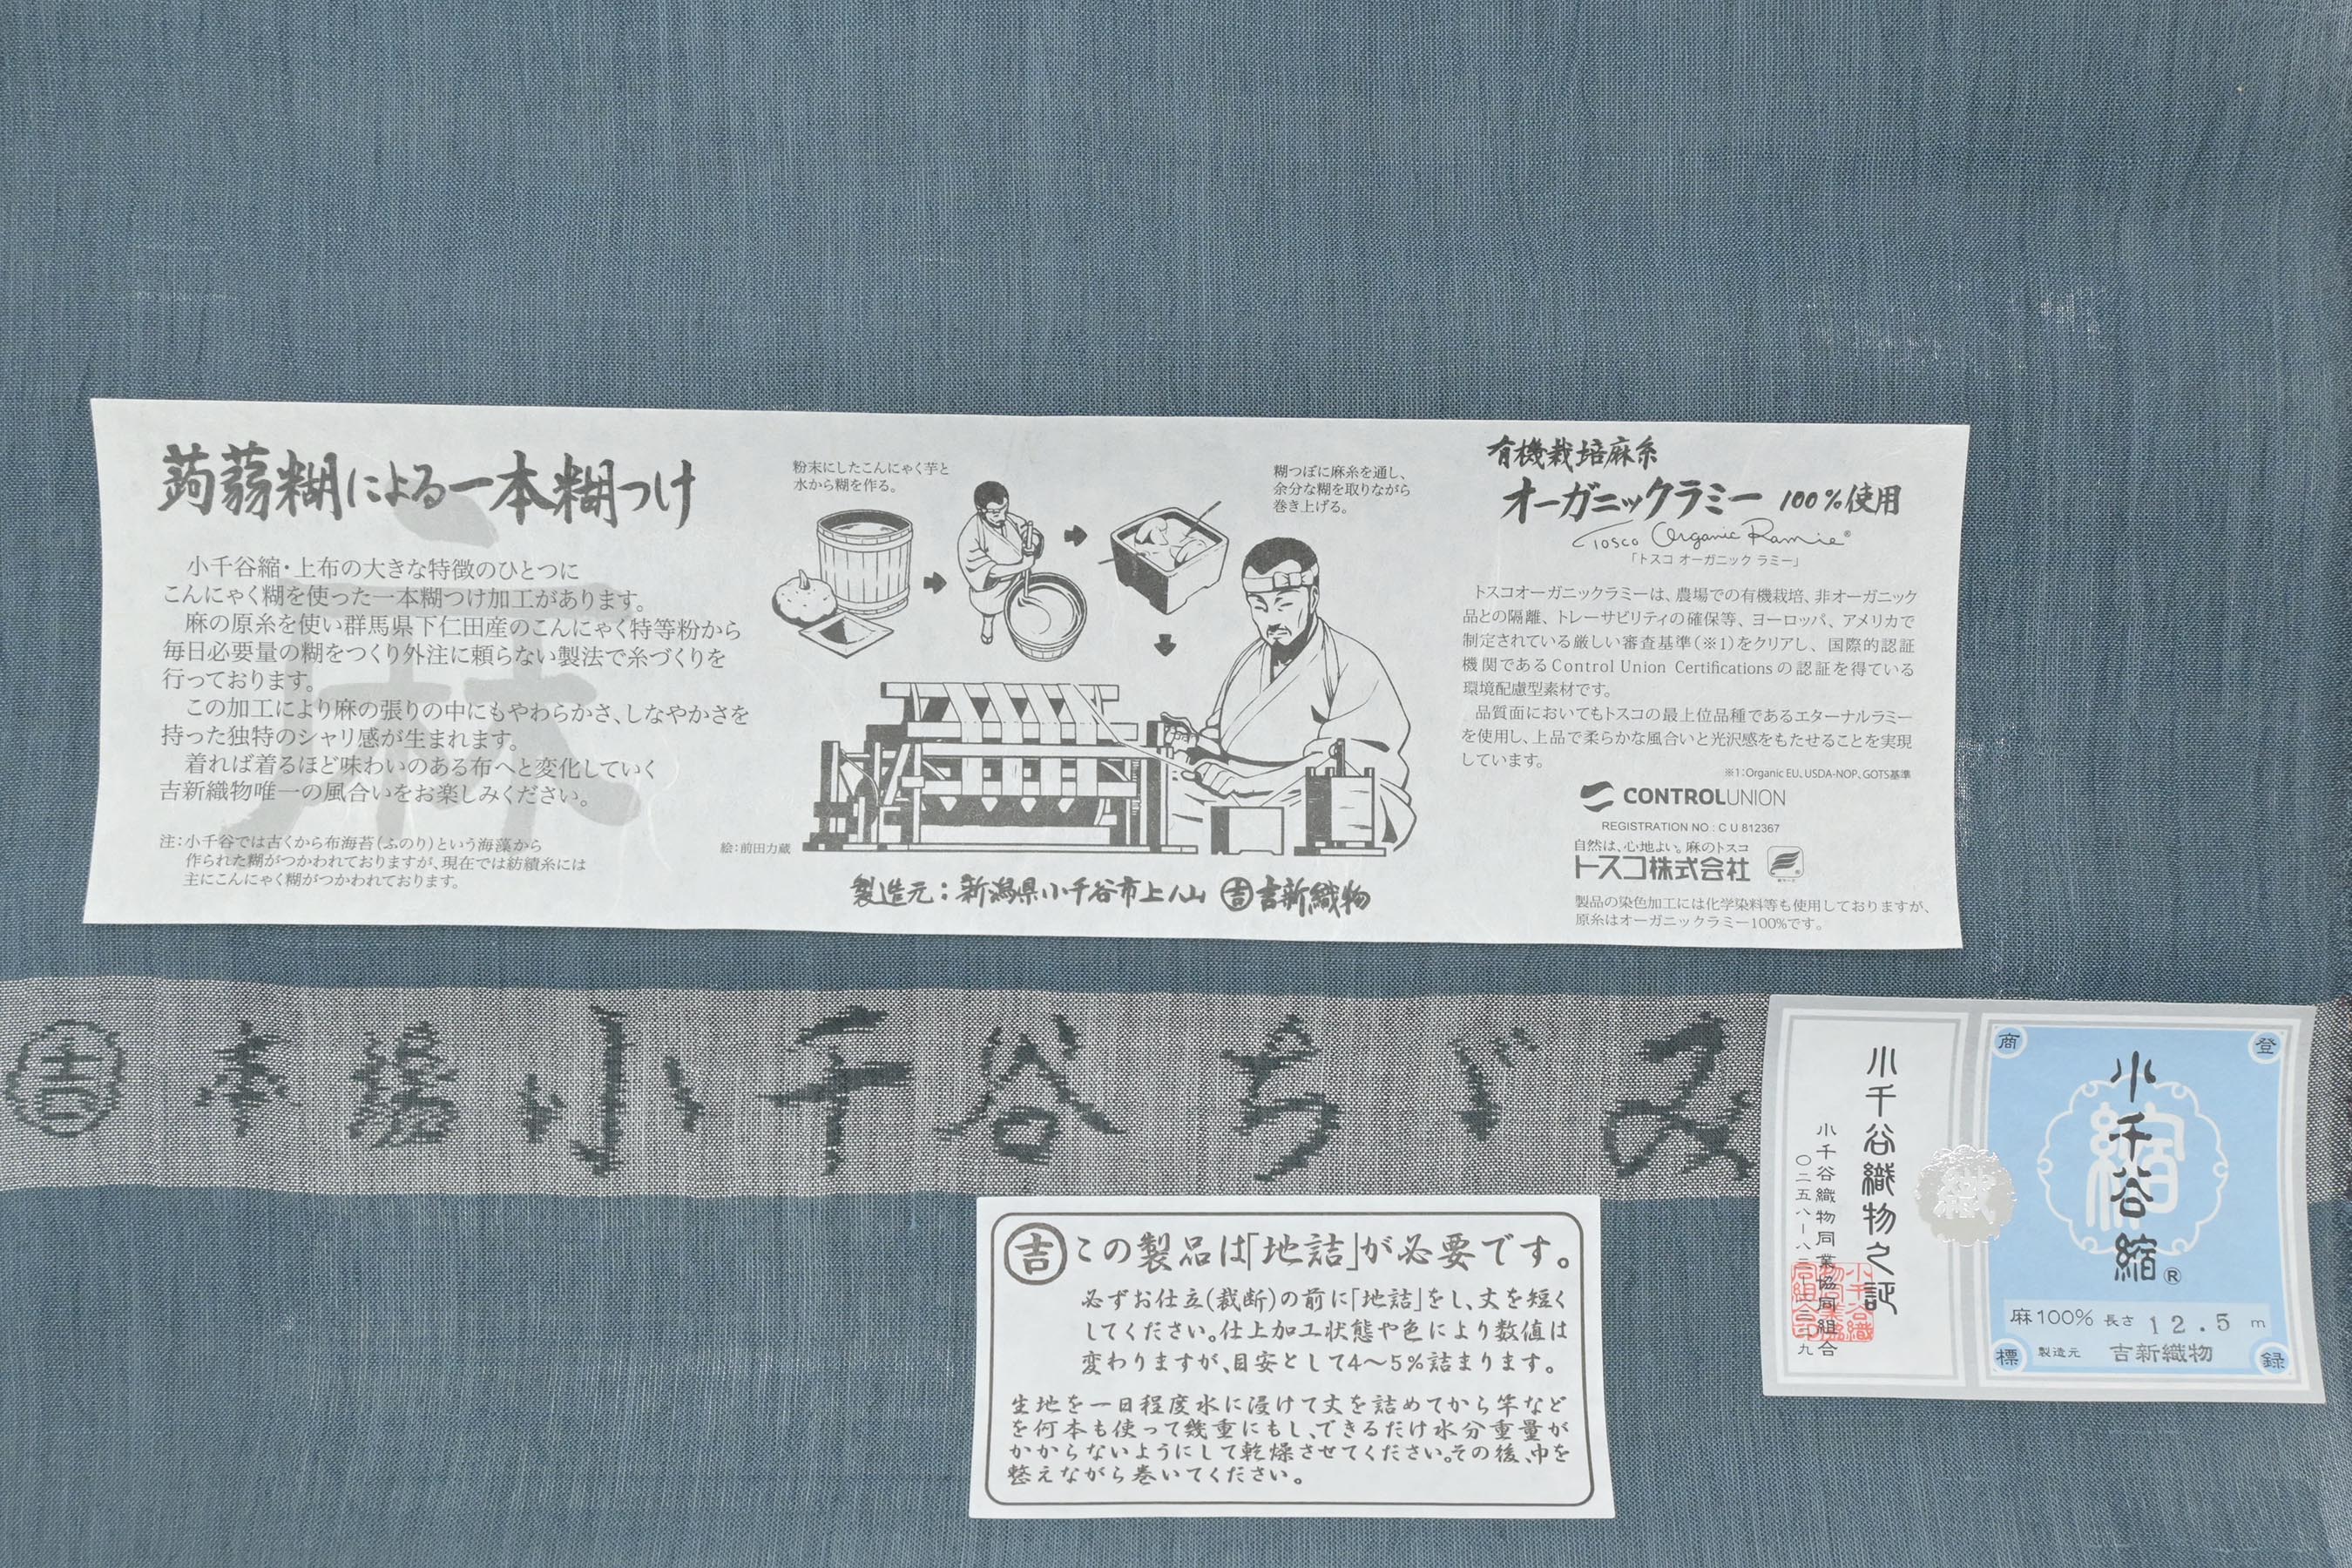 蒟蒻糊による一本糊つけ
麻
小千谷縮・上布の大きな特徴のひとつに
こんにゃく糊を使った一本糊つけ加工があります。
麻の原糸を使い群馬県下仁田産のこんにゃく特等粉から
毎日必要量の糊をつくり外注に頼らない製法で糸づくりを
行っております。
この加工により麻の張りの中にもやわらかさ、しなやかさを
持った独特のシャリ感が生まれます。
着れば着るほど味わいのある布へと変化していく
吉新織物唯一の風合いをお楽しみください。
注:小千谷では古くから布海苔(ふのり)という海藻から
作られた糊がつかわれておりますが、現在では紡績糸には
主にこんにゃく糊がつかわれております。
粉末にしたこんにゃく芋と
水から糊を作る。
糊つぼに麻糸を通し、
余分な糊を取りながら
巻き上げる。
絵:前田力蔵
製造元:新潟県小千谷市上ノ山 吉 吉新織物
有機栽培麻糸
オーガニックラミー 100%使用
Tosco Organic Ramie®
「トスコ オーガニック ラミー」
トスコオーガニックラミーは、農場での有機栽培、非オーガニック
品との隔離、トレーサビリティの確保等、ヨーロッパ、アメリカで
制定されている厳しい審査基準(※1)をクリアし、国際的認証
機関であるControl Union Certificationsの認証を得ている
環境配慮型素材です。
品質面においてもトスコの最上位品種であるエターナルラミー
を使用し、上品で柔らかな風合いと光沢感をもたせることを実現
しています。
※1:Organic EU、USDA-NOP、GOTS基準
CONTROLUNION
REGISTRATION NO : C U 812367
自然は、心地よい。麻のトスコ
トスコ株式会社
製品の染色加工には化学染料等も使用しておりますが、
原糸はオーガニックラミー100%です。
吉 本場小千谷ちゞみ
吉 この製品は「地詰」が必要です。
必ずお仕立(裁断)の前に「地詰」をし、丈を短く
してください。仕上加工状態や色により数値は
変わりますが、目安として4〜5%詰まります。
生地を一日程度水に浸けて丈を詰めてから竿など
を何本も使って幾重にもし、できるだけ水分重量が
かからないようにして乾燥させてください。その後、巾を
整えながら巻いてください。
登
録
商
標
縮
小千谷縮®
麻100% 長さ 12.5 m
製造元 吉新織物
織
小千谷織物之証
小千谷織物同業協同組合